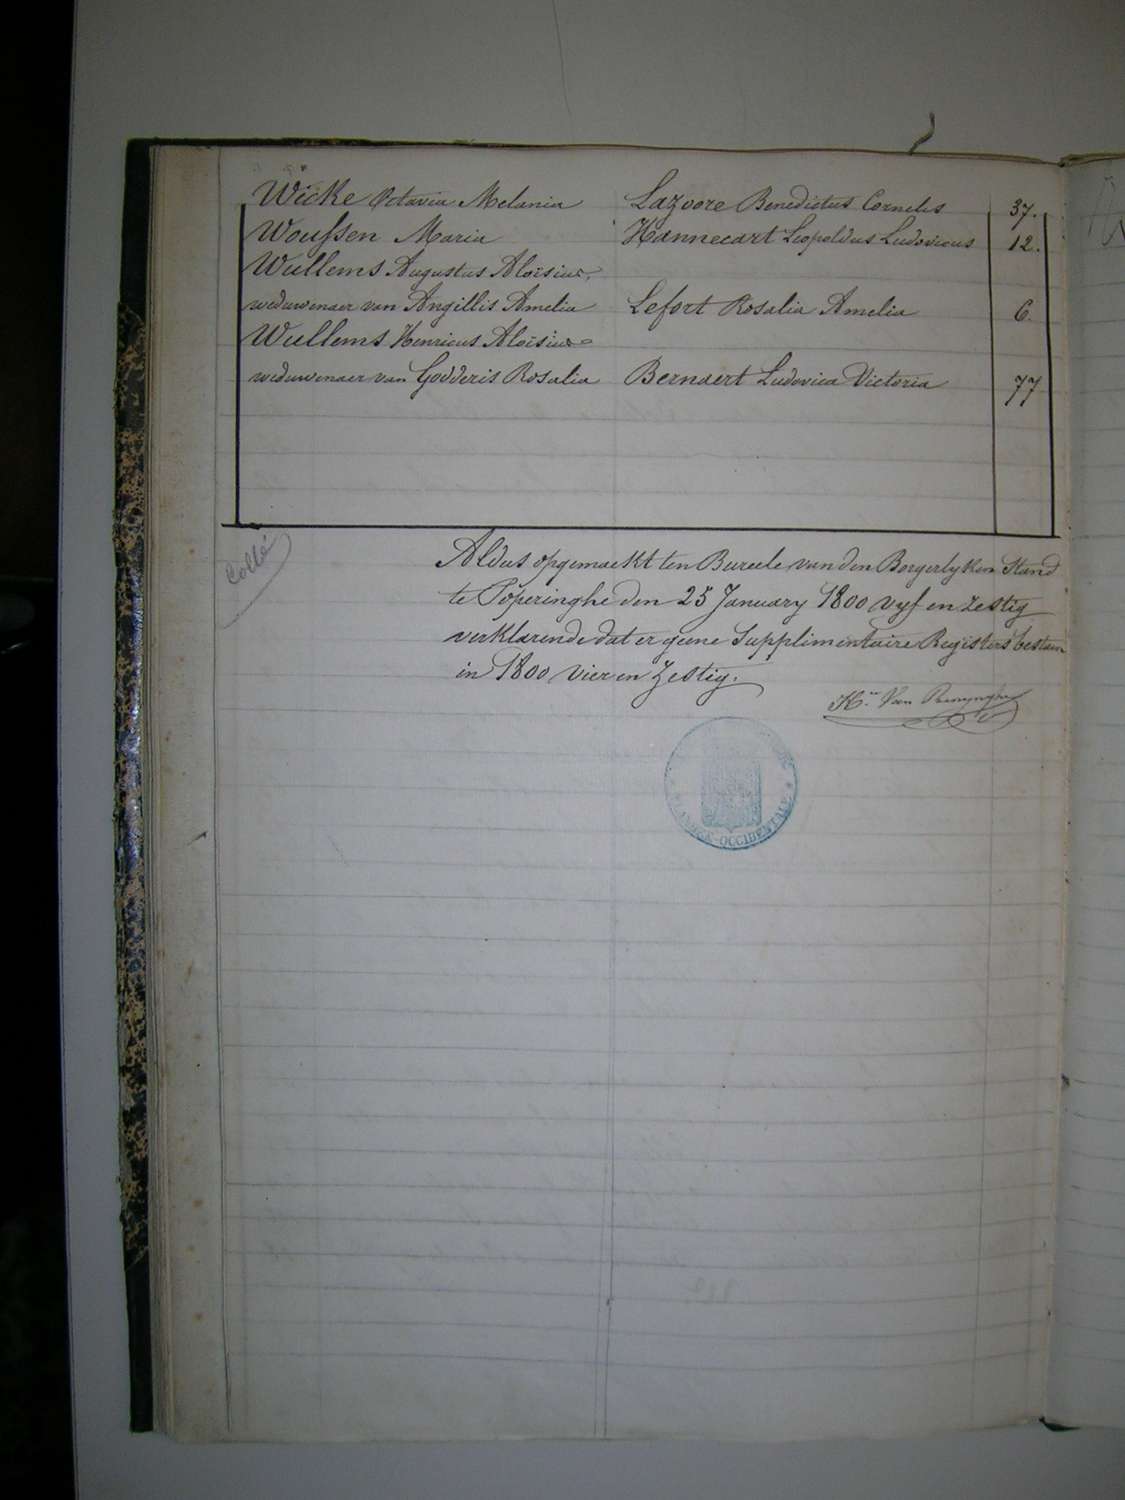 Wicke Octavia Melania Lazoore Benedictus Cornelis 37.
Woussen Maria Hannecart Leopoldus Ludovicus 12.
Wullems Augustus Aloïsius,
weduwenaer van Angillis Amelia Lefort Rosalia Amelia 6.
Wullems Henricus Aloïsius
weduwenaer van Godderis Rosalia Bernaert Ludovica Victoria 77
Collé
Aldus opgemaekt ten Bureele van den Borgerlyken Stand
te Poperinghe den 25 January 1800 vyf en zestig
verklarende dat er geene Supplimentaire Registers bestaen
in 1800 vier en zestig.
Van
FLANDRE-OCCIDENTALE